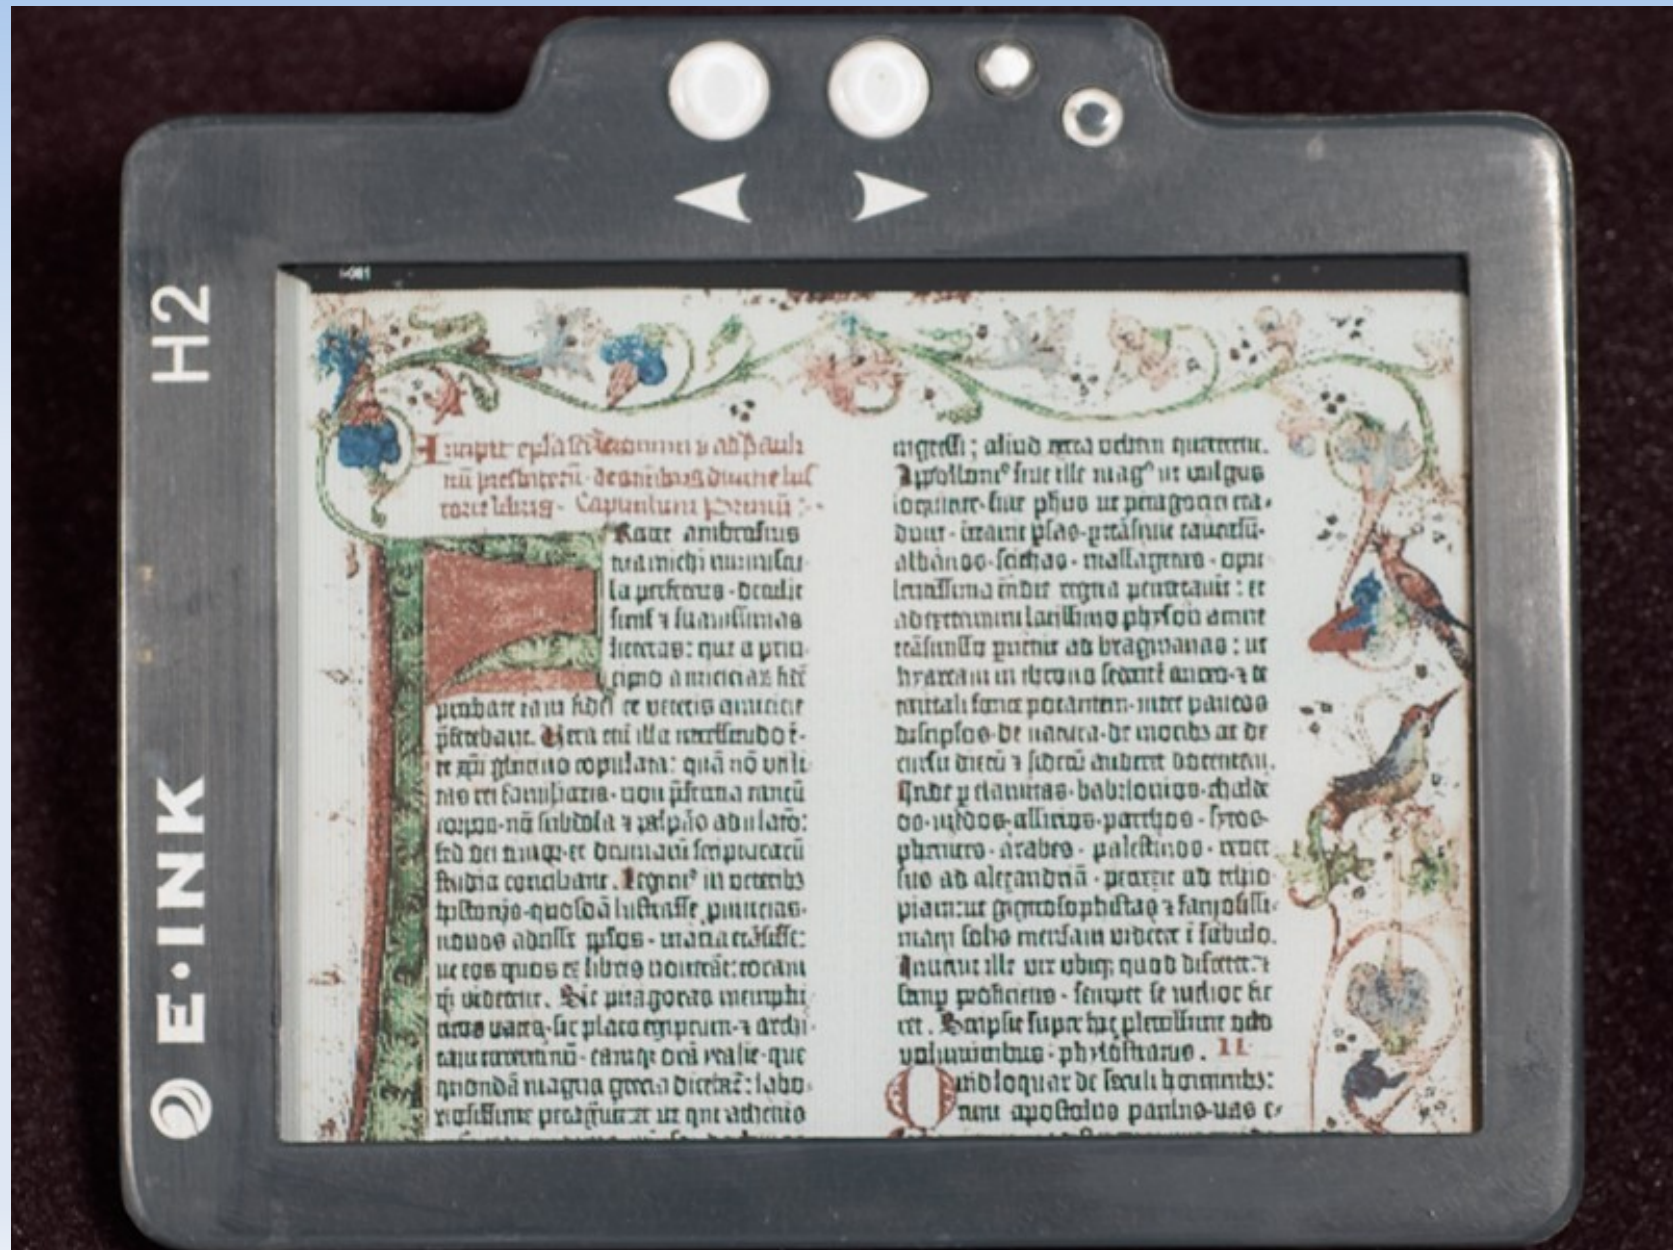 H2
E·INK
rater ambrosius
tua michi munuscu-
la perferens · detulit
simul ⁊ suavissimas
litteras: que a prin-
cipio amiciciaꝝ fidē
probate iam fidei et veteris amicicie
p̄ferebant. Vera enī illa necessitudo ē·
⁊ xp̄i glutino copulata: quā nō utili-
tas rei familiaris · non p̄sentia tantū
corporū · nō subdola ⁊ palpās adulatō:
sed dei timor · et divinaꝝ scripturarū
studia conciliant. Legimꝰ in veteribꝫ
historijs · quosdā lustrasse p̄vincias·
novos adisse pp̄los · maria trāsisse:
ut eos quos ex libris noverāt: coram
qꝫ viderent. Sic pitagoras memphi-
ticos vates · sic plato egiptum · ⁊ archi-
tam tarentinū · eamqꝫ orā ytalie · que
quondā magna grecia dicebat̄: labo-
riosissime peragravit: ⁊ ut qui athenis
ingressi; aliud extra urbem quererent.
Appollonꝰ sive ille magꝰ ut vulgus
loquitur · sive phūs ut pitagorici tra-
dunt · itravit p̄sas · p̄trāsivit caucasū·
albanos · scithas · massagetas · opu-
lentissima indie regna penetravit: et
ad extremum latissimo physon amne
trāsmisso pervenit ad bragmanas: ut
hyarcam in throno sedentē aureo · ⁊ de
tantali fonte potantem · inter paucos
discip̄los · de natura · de moribꝫ ac de
cursu dierū ⁊ siderū audiret docentem.
Inde ꝑ elamitas · babilonios · chalde-
os · medos · assirios · parthos · syros·
phenices · arabes · palestinos · rever-
sus ad alexandriā · perrexit ad ethio-
piam: ut gignosophistas ⁊ famosissi-
mam solis mensam videret ī sabulo.
Invenit ille vir ubiqꝫ quod disceret: ⁊
semꝑ proficiens · semper se melior fie-
ret. Scripsit super hoc plenissime octo
voluminibus · phylostratus. II
Quid loquar de seculi hominibꝫ:
cum apostolus paulus · vas e-